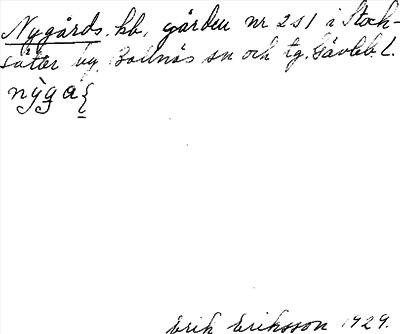 Nygårds. hb, gården nr 2 s 1 i Stock-
säter by, Bollnäs sn och tg. Gävleb. l.
nỳg a
Erik Eriksson 1929.